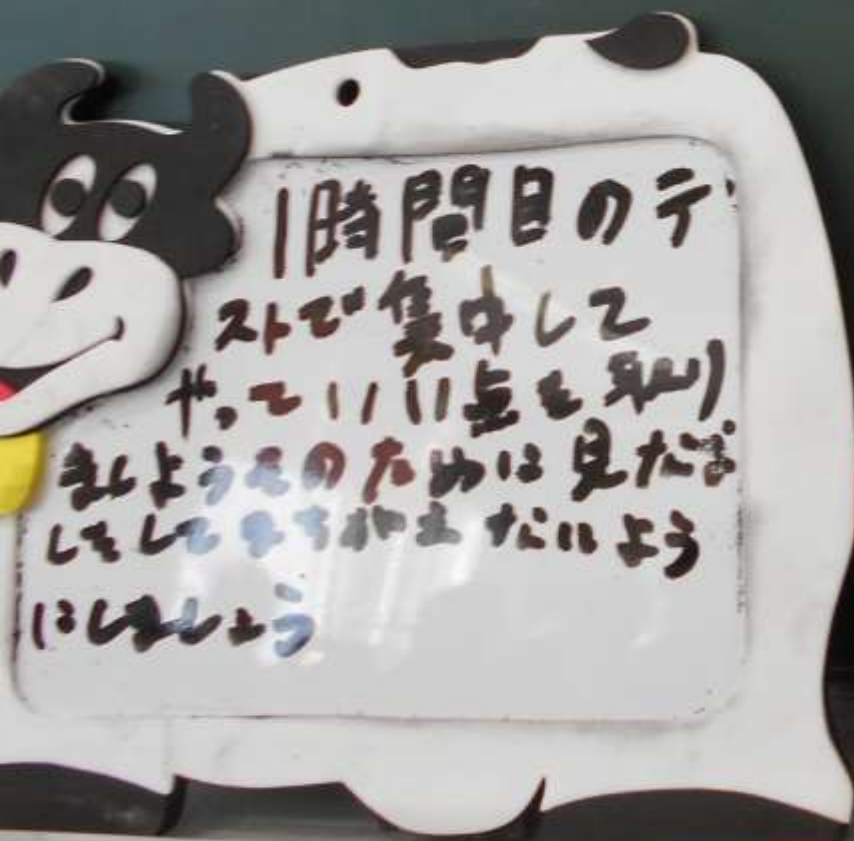 1時間目のテ
ストで集中して
やっていい点を取り
ましようそのためは見なお
しをしてまちがえないよう
にしましょう